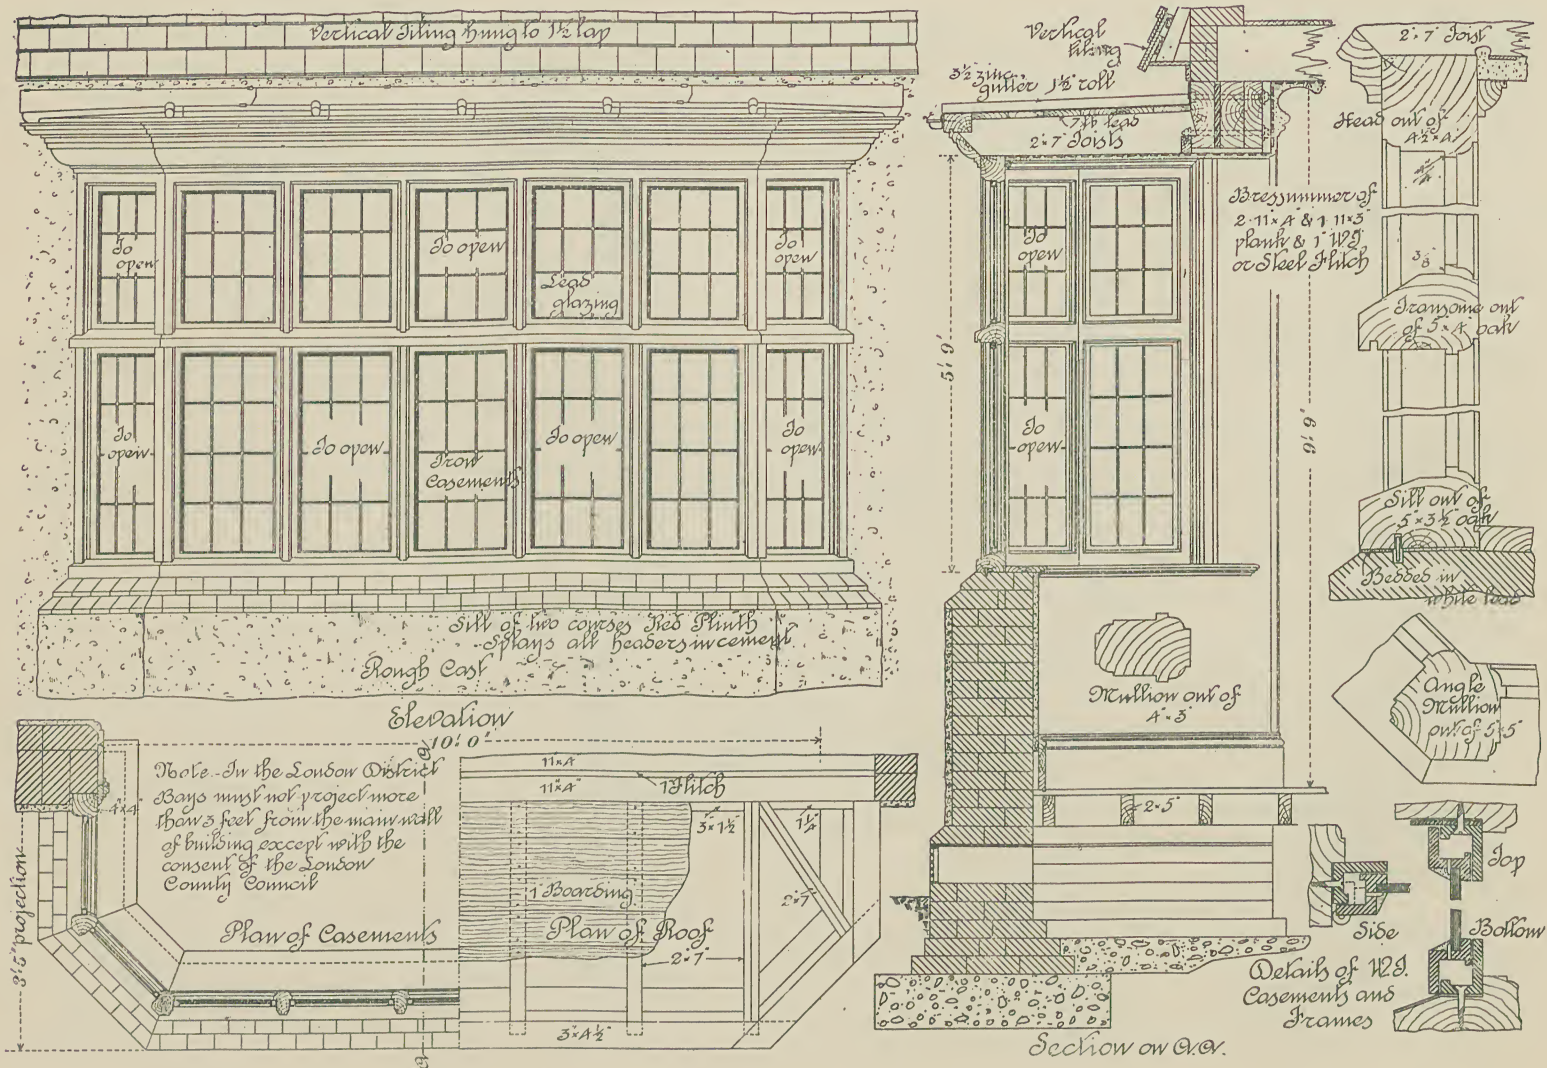 Vertical Tiling hung to 1½ lap
To open
To open
To open
Lead glazing
To open
To open
Iron Casements
To open
To open
Sill of two courses Red Plinth
Splays all headers in cement
Rough Cast
Elevation
10' 0"
Note.-In the London District
Bays must not project more
than 3 feet from the main wall
of building except with the
consent of the London
County Council
4"×4"
3' 5" projection
Plan of Casements
A
A
11×4
11"×4"
1 Flitch
3"×1½"
1¼"
1" Boarding
2"×7"
Plan of Roof
2"×7"
3"×4½"
Vertical
tiling
3½ zinc
gutter 1½" roll
7 lb lead
2"×7" Joists
Bressummer of
2·11"×4 & 1·11×3"
plank & 1" W.I.
or Steel Flitch
5' 9"
To open
To open
Mullion out of
4"×3"
2"×5"
Section on A.A.
2"·7" Joist
Head out of
4½"×4"
3/8"
Transome out
of 5"×4" oak
Sill out of
5"×3½" oak
Bedded in
white lead
Angle
Mullion
out of 5"×5"
Top
Side
Bottom
Details of W.I.
Casements and
Frames